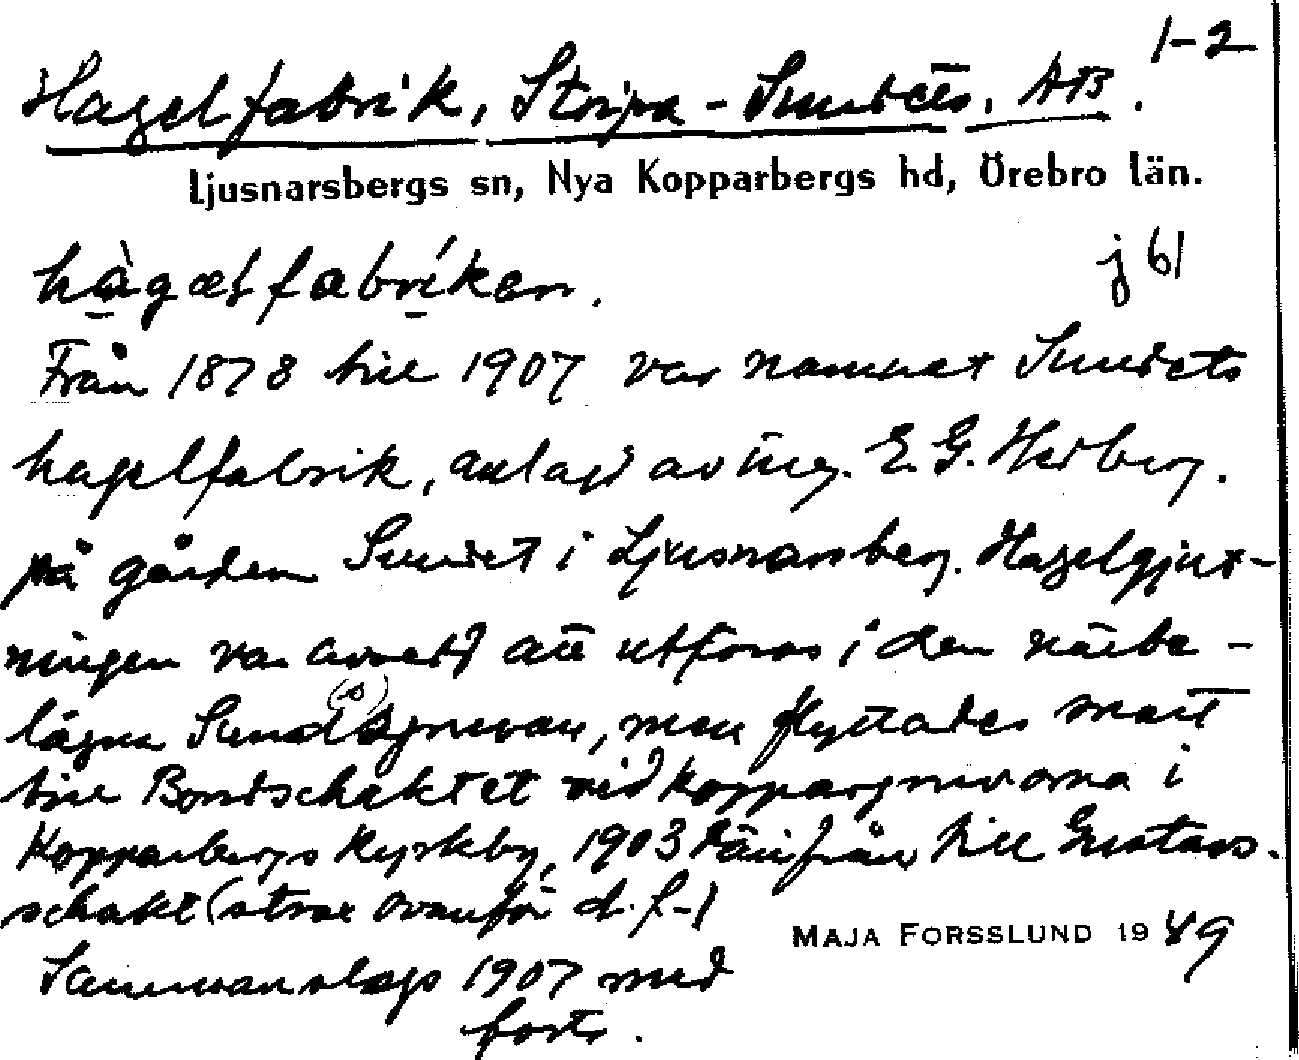 1-2
Hagelfabrik, Stripa - Sundets, AB.
Ljusnarsbergs sn, Nya Kopparbergs hd, Örebro län.
hàgælfabríken.
j 61
Från 1878 till 1907 var namnet Sundets
hagelfabrik, anlagd av ing. E. G. Hedberg.
på gården Sundet i Ljusnarsberg. Hagelgjut-
ningen var avsedd att utföras i den närbe-
lägna Sundsgruvan, men flyttades snart
till Bondschaktet vid koppargruvorna i
Kopparbergs kyrkby, 1903 därifrån till Gustavs-
schakt (strax ovanför d. f-)
MAJA FORSSLUND 1949
Sammanslogs 1907 med
forts.